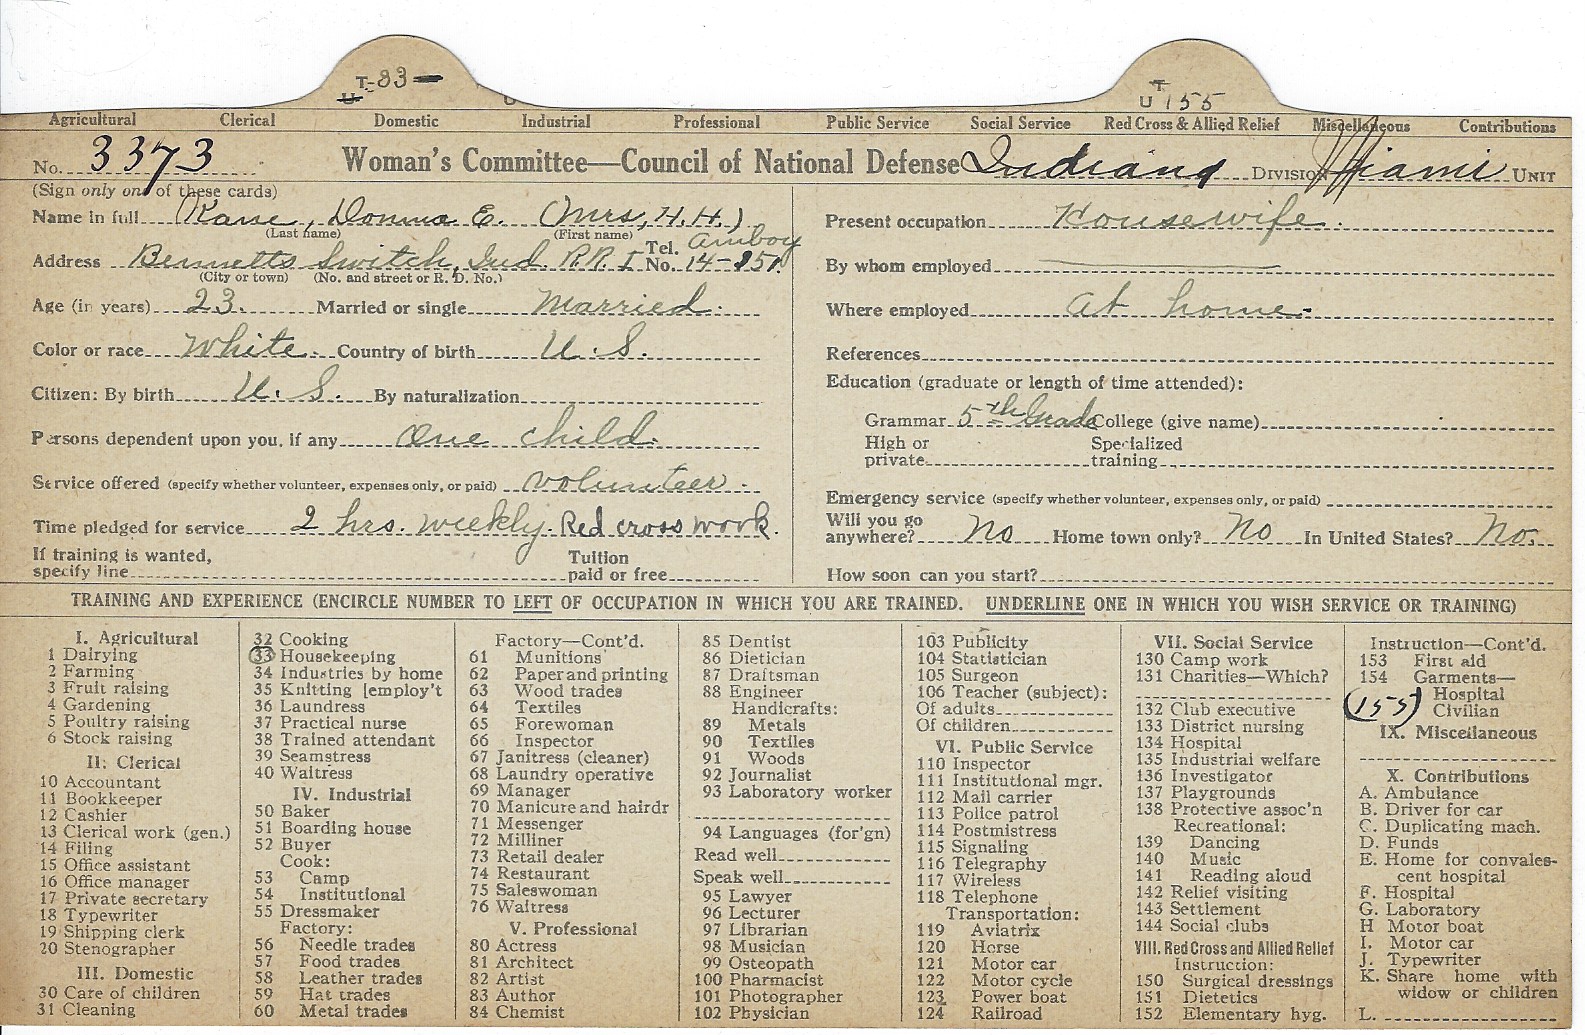 T-33
U
T
U 155
Agricultural Clerical Domestic Industrial Professional Public Service Social Service Red Cross & Allied Relief Miscellaneous Contributions
No. 3373 Woman's Committee—Council of National Defense Indiana Division Miami Unit
(Sign only one of these cards)
Name in full Kane, Donna E. (Mrs, H. H.)
(Last name) (First name)
Address Bennetts Switch, Ind. R.R. 1 Tel. No. Amboy 14-851.
(City or town) (No. and street or R. D. No.)
Age (in years) 23. Married or single Married.
Color or race White. Country of birth U. S.
Citizen: By birth U. S. By naturalization
Persons dependent upon you, if any One child.
Service offered (specify whether volunteer, expenses only, or paid) volunteer.
Time pledged for service 2 hrs. weekly. Red cross work.
If training is wanted,
specify line Tuition paid or free
Present occupation Housewife.
By whom employed
Where employed at home.
References
Education (graduate or length of time attended):
Grammar 5th Grade College (give name)
High or private Specialized training
Emergency service (specify whether volunteer, expenses only, or paid)
Will you go anywhere? No Home town only? No In United States? No.
How soon can you start?
TRAINING AND EXPERIENCE (ENCIRCLE NUMBER TO LEFT OF OCCUPATION IN WHICH YOU ARE TRAINED. UNDERLINE ONE IN WHICH YOU WISH SERVICE OR TRAINING)
I. Agricultural
1 Dairying
2 Farming
3 Fruit raising
4 Gardening
5 Poultry raising
6 Stock raising
II. Clerical
10 Accountant
11 Bookkeeper
12 Cashier
13 Clerical work (gen.)
14 Filing
15 Office assistant
16 Office manager
17 Private secretary
18 Typewriter
19 Shipping clerk
20 Stenographer
III. Domestic
30 Care of children
31 Cleaning
32 Cooking
33 Housekeeping
34 Industries by home
35 Knitting [employ't
36 Laundress
37 Practical nurse
38 Trained attendant
39 Seamstress
40 Waitress
IV. Industrial
50 Baker
51 Boarding house
52 Buyer
Cook:
53 Camp
54 Institutional
55 Dressmaker
Factory:
56 Needle trades
57 Food trades
58 Leather trades
59 Hat trades
60 Metal trades
Factory—Cont'd.
61 Munitions
62 Paper and printing
63 Wood trades
64 Textiles
65 Forewoman
66 Inspector
67 Janitress (cleaner)
68 Laundry operative
69 Manager
70 Manicure and hairdr
71 Messenger
72 Milliner
73 Retail dealer
74 Restaurant
75 Saleswoman
76 Waitress
V. Professional
80 Actress
81 Architect
82 Artist
83 Author
84 Chemist
85 Dentist
86 Dietician
87 Draftsman
88 Engineer
Handicrafts:
89 Metals
90 Textiles
91 Woods
92 Journalist
93 Laboratory worker
94 Languages (for'gn)
Read well
Speak well
95 Lawyer
96 Lecturer
97 Librarian
98 Musician
99 Osteopath
100 Pharmacist
101 Photographer
102 Physician
103 Publicity
104 Statistician
105 Surgeon
106 Teacher (subject):
Of adults
Of children
VI. Public Service
110 Inspector
111 Institutional mgr.
112 Mail carrier
113 Police patrol
114 Postmistress
115 Signaling
116 Telegraphy
117 Wireless
118 Telephone
Transportation:
119 Aviatrix
120 Horse
121 Motor car
122 Motor cycle
123 Power boat
124 Railroad
VII. Social Service
130 Camp work
131 Charities—Which?
132 Club executive
133 District nursing
134 Hospital
135 Industrial welfare
136 Investigator
137 Playgrounds
138 Protective assoc'n
Recreational:
139 Dancing
140 Music
141 Reading aloud
142 Relief visiting
143 Settlement
144 Social clubs
VIII. Red Cross and Allied Relief
Instruction:
150 Surgical dressings
151 Dietetics
152 Elementary hyg.
Instruction—Cont'd.
153 First aid
154 Garments—
Hospital
(155) Civilian
IX. Miscellaneous
X. Contributions
A. Ambulance
B. Driver for car
C. Duplicating mach.
D. Funds
E. Home for convales-
cent hospital
F. Hospital
G. Laboratory
H Motor boat
I. Motor car
J. Typewriter
K. Share home with
widow or children
L.